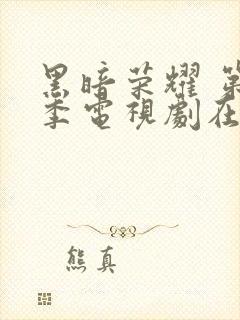 黑暗荣耀 第
季电视剧在
熊真